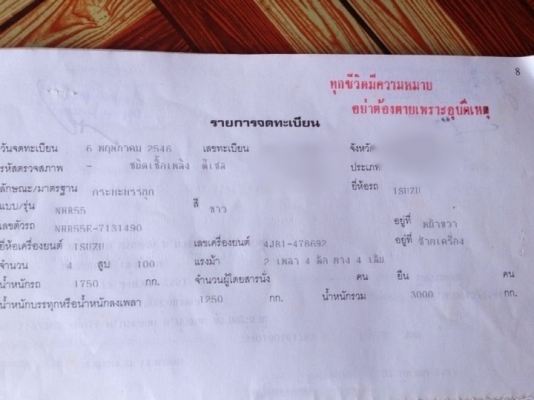 8
ทุกชีวิตมีความหมาย
อย่าต้องตายเพราะอุบัติเหตุ
รายการจดทะเบียน
วันจดทะเบียน 6 พฤษภาคม 2546 เลขทะเบียน จังหวัด
รหัสตรวจสภาพ - ชนิดเชื้อเพลิง ดีเซล ประเภท
ลักษณะ/มาตรฐาน กระบะบรรทุก ยี่ห้อรถ ISUZU
แบบ/รุ่น NHR55 สี ขาว
เลขตัวรถ NHR55E-7131490 อยู่ที่ หน้าขวา
ยี่ห้อเครื่องยนต์ ISUZU เลขเครื่องยนต์ 4JB1-476692 อยู่ที่ ซ้ายเครื่อง
จำนวน 4 สูบ 100 แรงม้า 2 เพลา 4 ล้อ ยาง 4 เส้น
น้ำหนักรถ 1750 กก. จำนวนผู้โดยสารนั่ง คน ยืน คน
น้ำหนักบรรทุกหรือน้ำหนักลงเพลา 1250 กก. น้ำหนักรวม 3000 กก.